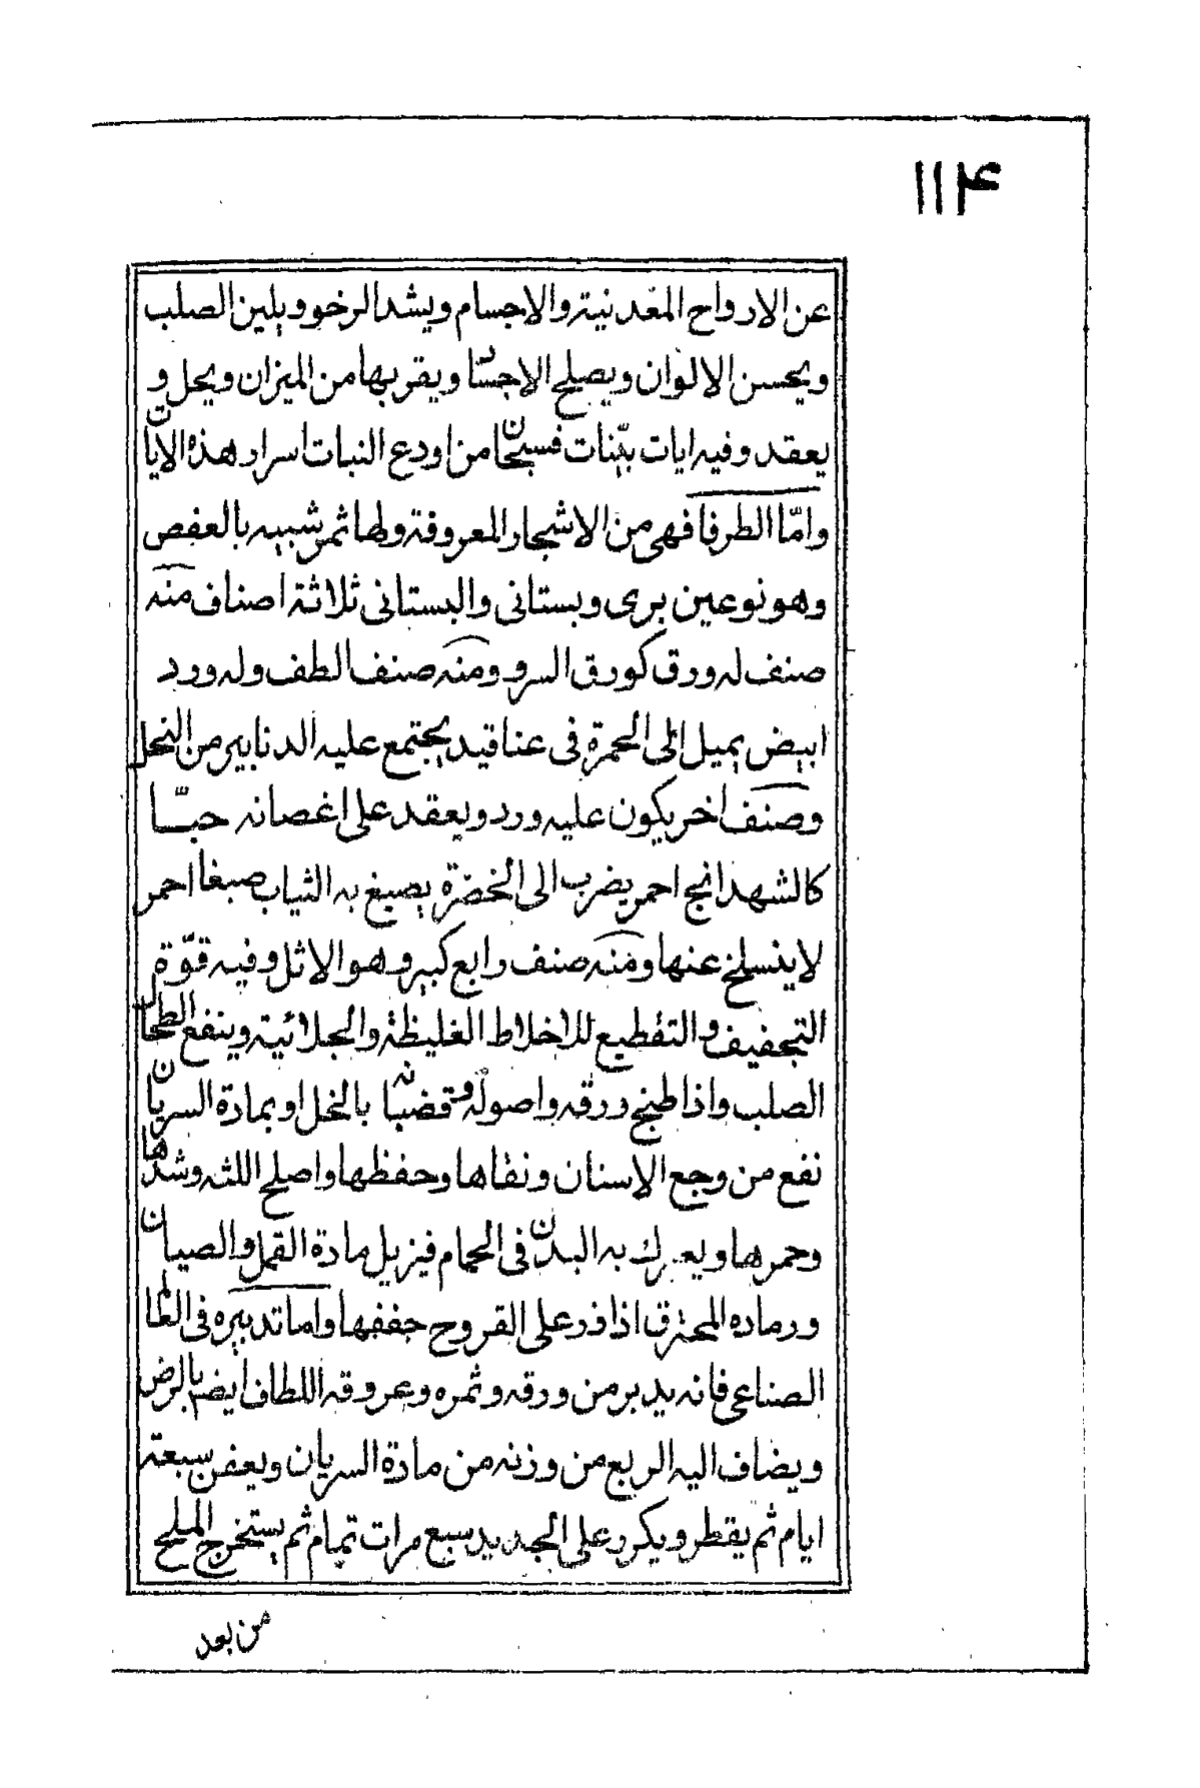 ۱۱۴
عن الارواح المعدنية والاجسام ويشد الرخو ويلين الصلب
ويحسن الالوان ويصلح الاجساد ويقربها من الميزان ويحل و
يعقد وفيه ايات بيّنات فسبحان من اودع النبات اسرار هذه الايات
وامّا الطرفا فهى من الاشجار المعروفة ولها ثمر شبيه بالعفص
وهو نوعين برى وبستانى والبستانى ثلاثة اصناف منه
صنف له ورق كورق السرو ومنه صنف الطف وله ورد
ابيض يميل الى الحمرة فى عناقيد يجتمع عليه الدنابير من النحل
وصنف اخر يكون عليه ورد ويعقد على اغصانه حبّا
كالشهدانج احمر يضرب الى الخضرة يصبغ به الثياب صبغا احمر
لا ينسلخ عنها ومنه صنف رابع كبير وهو الاثل وفيه قوّة
التجفيف والتقطيع للاخلاط الغليظة والجلائية وينفع الطحال
الصلب واذا طبخ ورقه واصوله وقضبانه بالخل او بمادة السريان
نفع من وجع الاسنان ونقاها وحفظها واصلح اللثه وشدها
وحمرها ويعرك به البدن فى الحمام فيزيل مادة القمل والصيبان
ورماده المحترق اذا ذر على القروح جففها واما تدبيره فى
الصناعى فانه يدبر من ورقه وثمره وعروقه اللطاف ايضا بالرض
ويضاف اليه الربع من وزنه من مادة السريان ويعفن سبعة
ايام ثم يقطر ويكرر على الجديد سبع مرات تمام ثم يستخرج الملح
من بعد